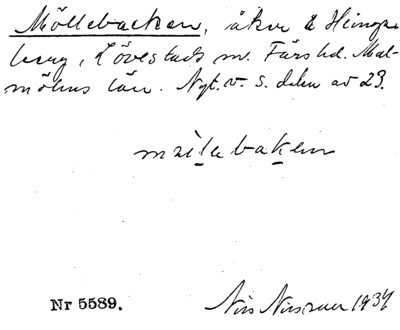 Möllebacken, åker å Heinge-
berg, Lövestads sn. Färs hd. Mal-
möhus län. Nyt. v. s. delen av 23.
mölebaken
Nr 5589.
Nils Nilsson 1934